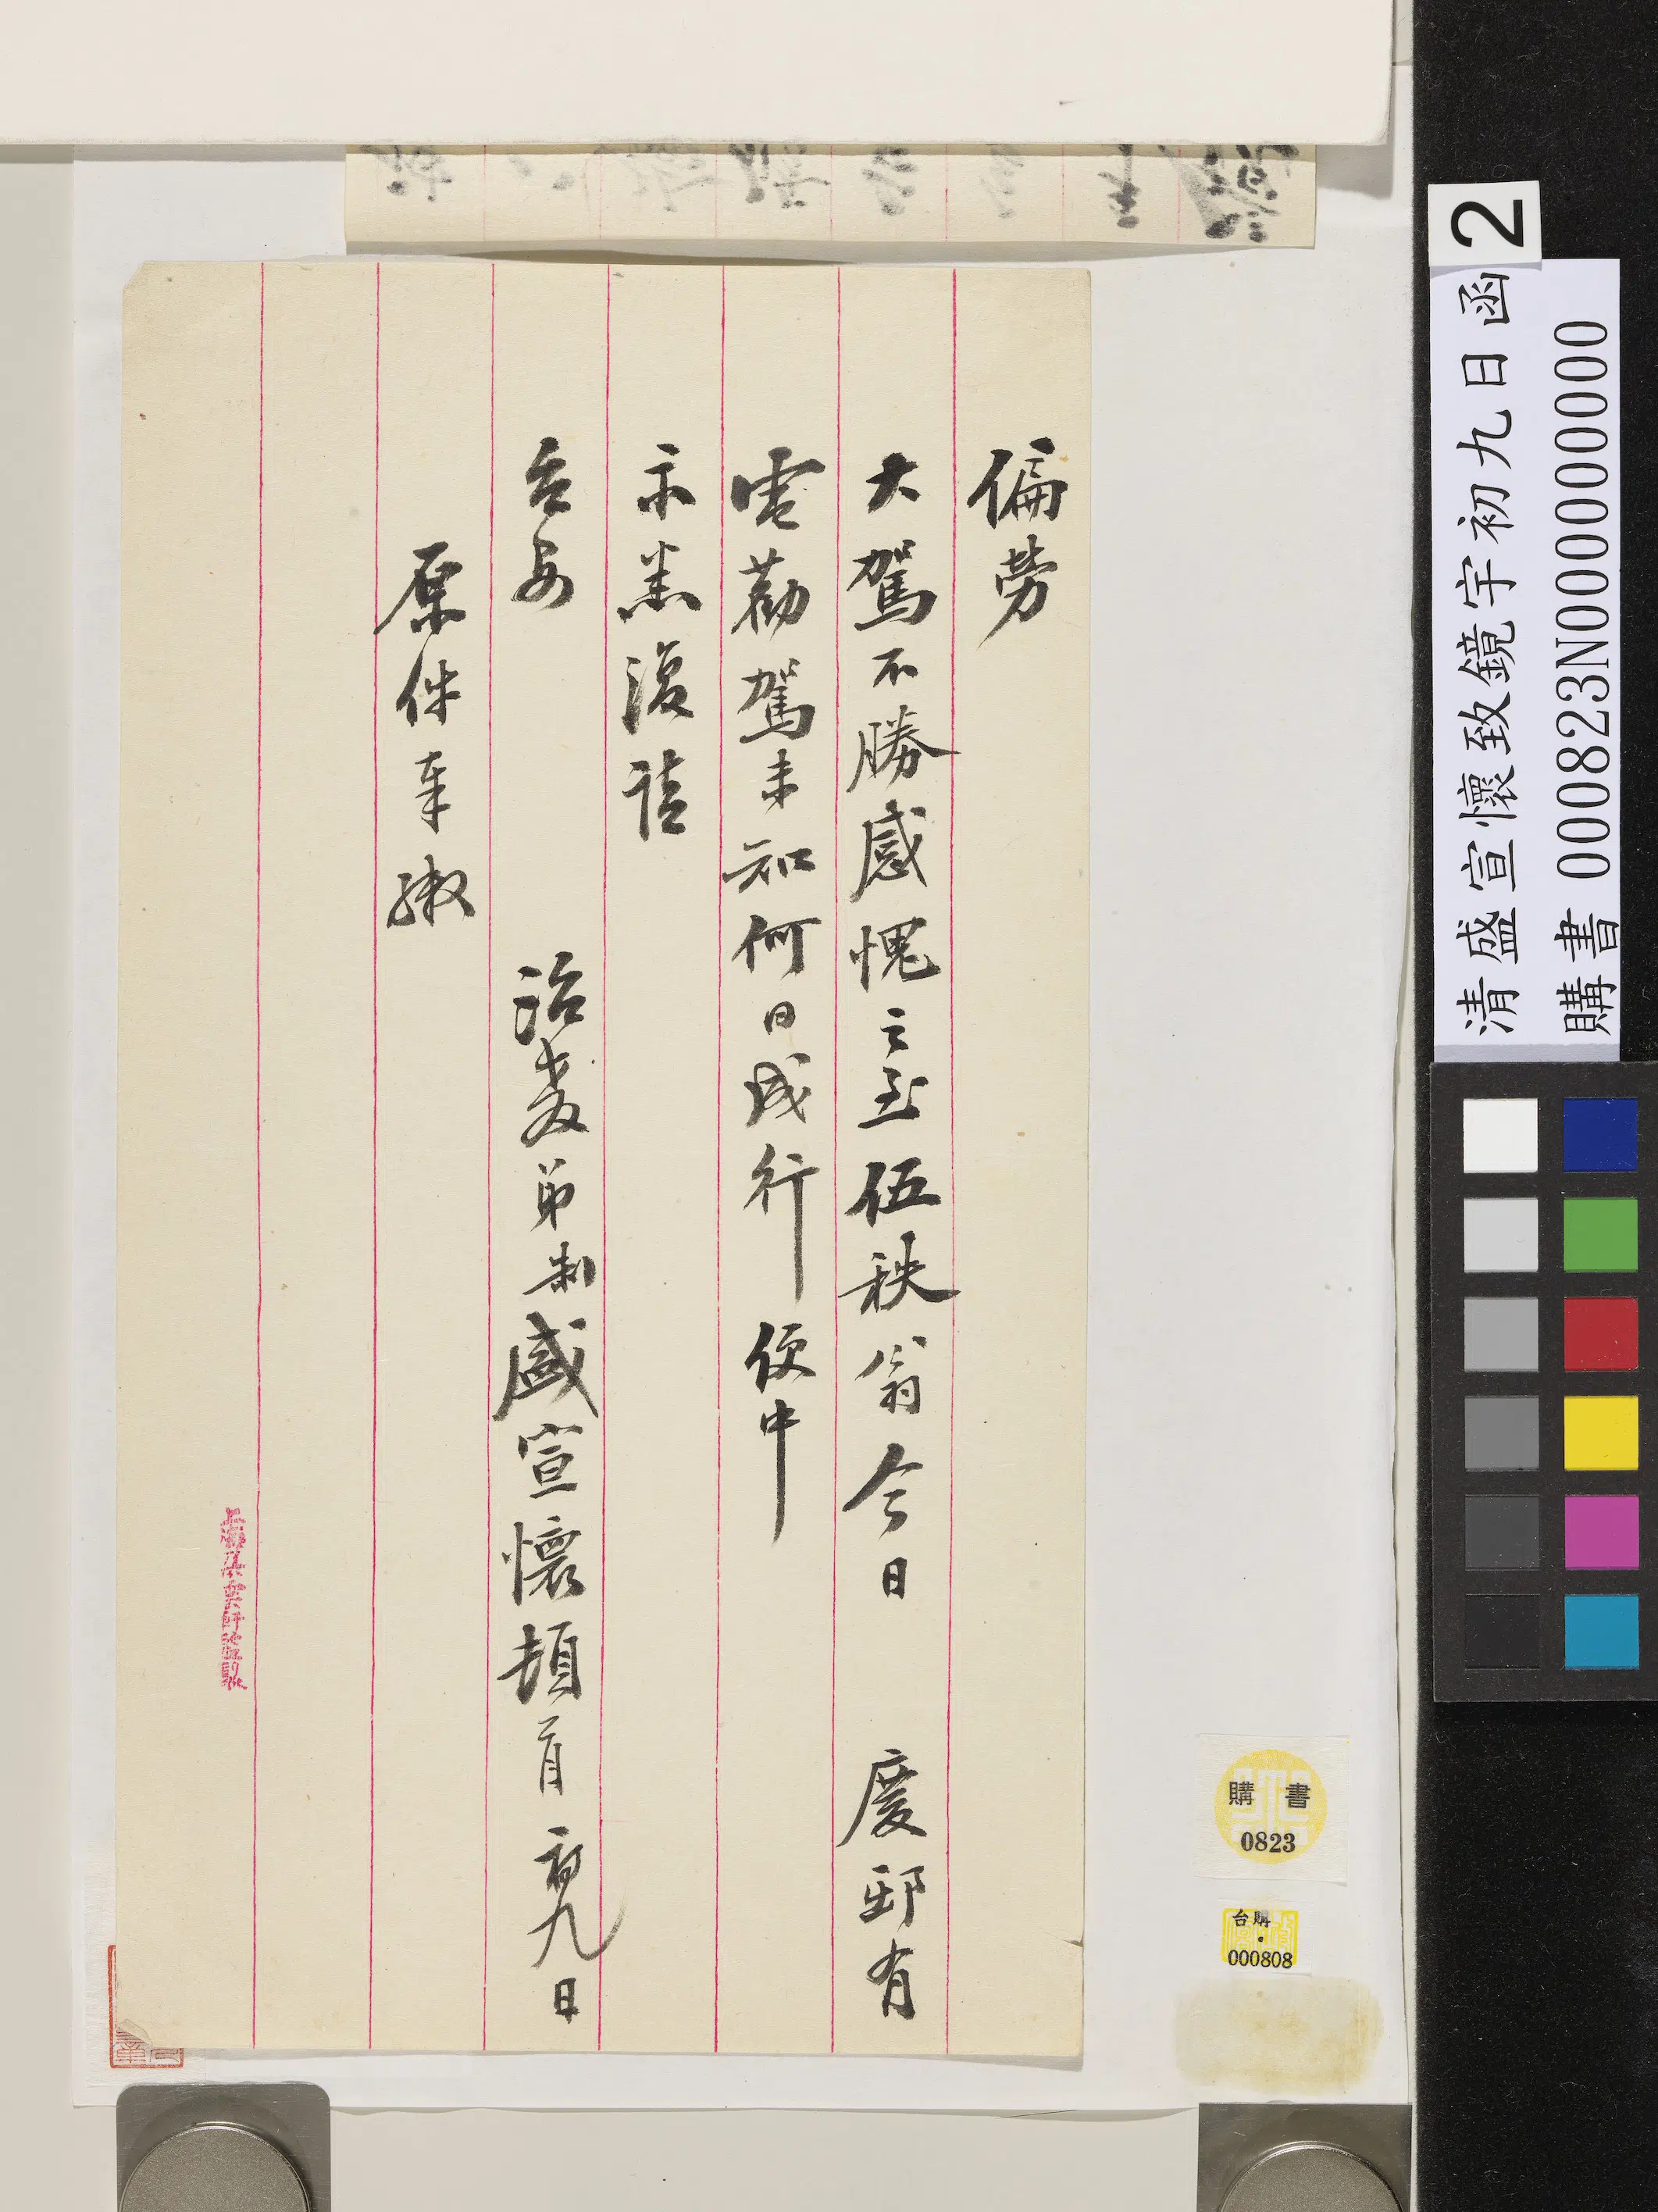 偏勞
大駕不勝感愧之至伍秩翁今日 慶邸有
電勸駕未知何日成行便中
示悉復請
台安
治愚弟制盛宣懷頓首 初九日
原件奉繳
上海
清盛宣懷致鏡宇初九日函 2
購書 000823N000000000
購書
0823
台購
000808